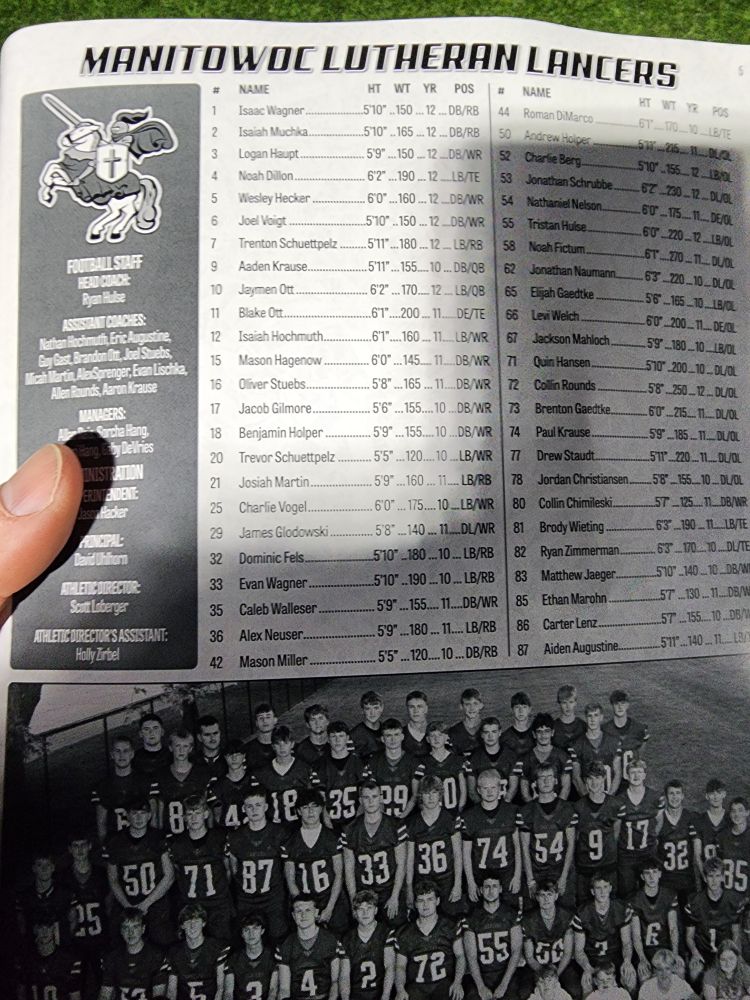 MANITOWOC LUTHERAN LANCERS
FOOTBALL STAFF
HEAD COACH:
Ryan Hulse
ASSISTANT COACHES:
Nathan Hochmuth, Eric Augustine,
Guy Gast, Brandon Ott, Joel Stuebs,
Micah Martin, AlexSprenger, Evan Lischka,
Allen Rounds, Aaron Krause
MANAGERS:
Hang,
Hang, DeVries
Jason Hacker
PRINCIPAL:
David Uhlhorn
ATHLETIC DIRECTOR:
Scott Loberger
ATHLETIC DIRECTOR'S ASSISTANT:
Holly Zirbel
# NAME HT WT YR POS
1 Isaac Wagner 5'10" 150 12 DB/RB
2 Isaiah Muchka 5'10" 165 12 DB/RB
3 Logan Haupt 5'9" 150 12 DB/WR
4 Noah Dillon 6'2" 190 12 LB/TE
5 Wesley Hecker 6'0" 160 12 DB/WR
6 Joel Voigt 5'10" 150 12 DB/WR
7 Trenton Schuettpelz 5'11" 180 12 LB/RB
9 Aaden Krause 5'11" 155 10 DB/QB
10 Jaymen Ott 6'2" 170 12 LB/QB
11 Blake Ott 6'1" 200 11 DE/TE
12 Isaiah Hochmuth 6'1" 160 11 LB/WR
15 Mason Hagenow 6'0" 145 11 DB/WR
16 Oliver Stuebs 5'8" 165 11 DB/WR
17 Jacob Gilmore 5'6" 155 10 DB/WR
18 Benjamin Holper 5'9" 155 10 DB/WR
20 Trevor Schuettpelz 5'5" 120 10 LB/RB
21 Josiah Martin 5'9" 160 11 LB/RB
25 Charlie Vogel 6'0" 175 10 LB/WR
29 James Glodowski 5'8" 140 11 DL/WR
32 Dominic Fels 5'10" 180 10 LB/RB
33 Evan Wagner 5'10" 190 10 LB/RB
35 Caleb Walleser 5'9" 155 11 DB/WR
36 Alex Neuser 5'9" 180 11 LB/RB
42 Mason Miller 5'5" 120 10 DB/RB
# NAME HT WT YR POS
44 Roman DiMarco 6'1" 170 10 LB/TE
50 Andrew Holper 215 11 DL/OL
52 Charlie Berg 5'10" 155 12 LB/OL
53 Jonathan Schrubbe 6'2" 230 12 DL/OL
54 Nathaniel Nelson 6'0" 175 11 DE/OL
55 Tristan Hulse 6'0" 220 12 LB/OL
58 Noah Fictum 6'1" 270 11 DL/OL
62 Jonathan Naumann 6'3" 220 10 DL/OL
65 Elijah Gaedtke 5'6" 165 10 LB/OL
66 Levi Welch 6'0" 200 11 DE/OL
67 Jackson Mahloch 5'9" 180 10 LB/OL
71 Quin Hansen 5'10" 200 10 DL/OL
72 Collin Rounds 5'8" 250 12 DL/OL
73 Brenton Gaedtke 6'0" 215 11 DL/OL
74 Paul Krause 5'9" 185 11 DL/OL
77 Drew Staudt 5'11" 220 11 DL/OL
78 Jordan Christiansen 5'8" 155 10 DL/OL
80 Collin Chimileski 5'7" 125 11 DB/WR
81 Brody Wieting 6'3" 190 11 LB/TE
82 Ryan Zimmerman 6'3" 170 10 DL/TE
83 Matthew Jaeger 5'10" 140 10 DB/W
85 Ethan Marohn 5'7" 130 11 DB/W
86 Carter Lenz 5'7" 155 10 DB/
87 Aiden Augustine 5'11" 140 11 LB/
18 35 29
50 71 87 16 33 36 74 54 9 17 32
25 35
5 3 4 2 72 55 7 6 1